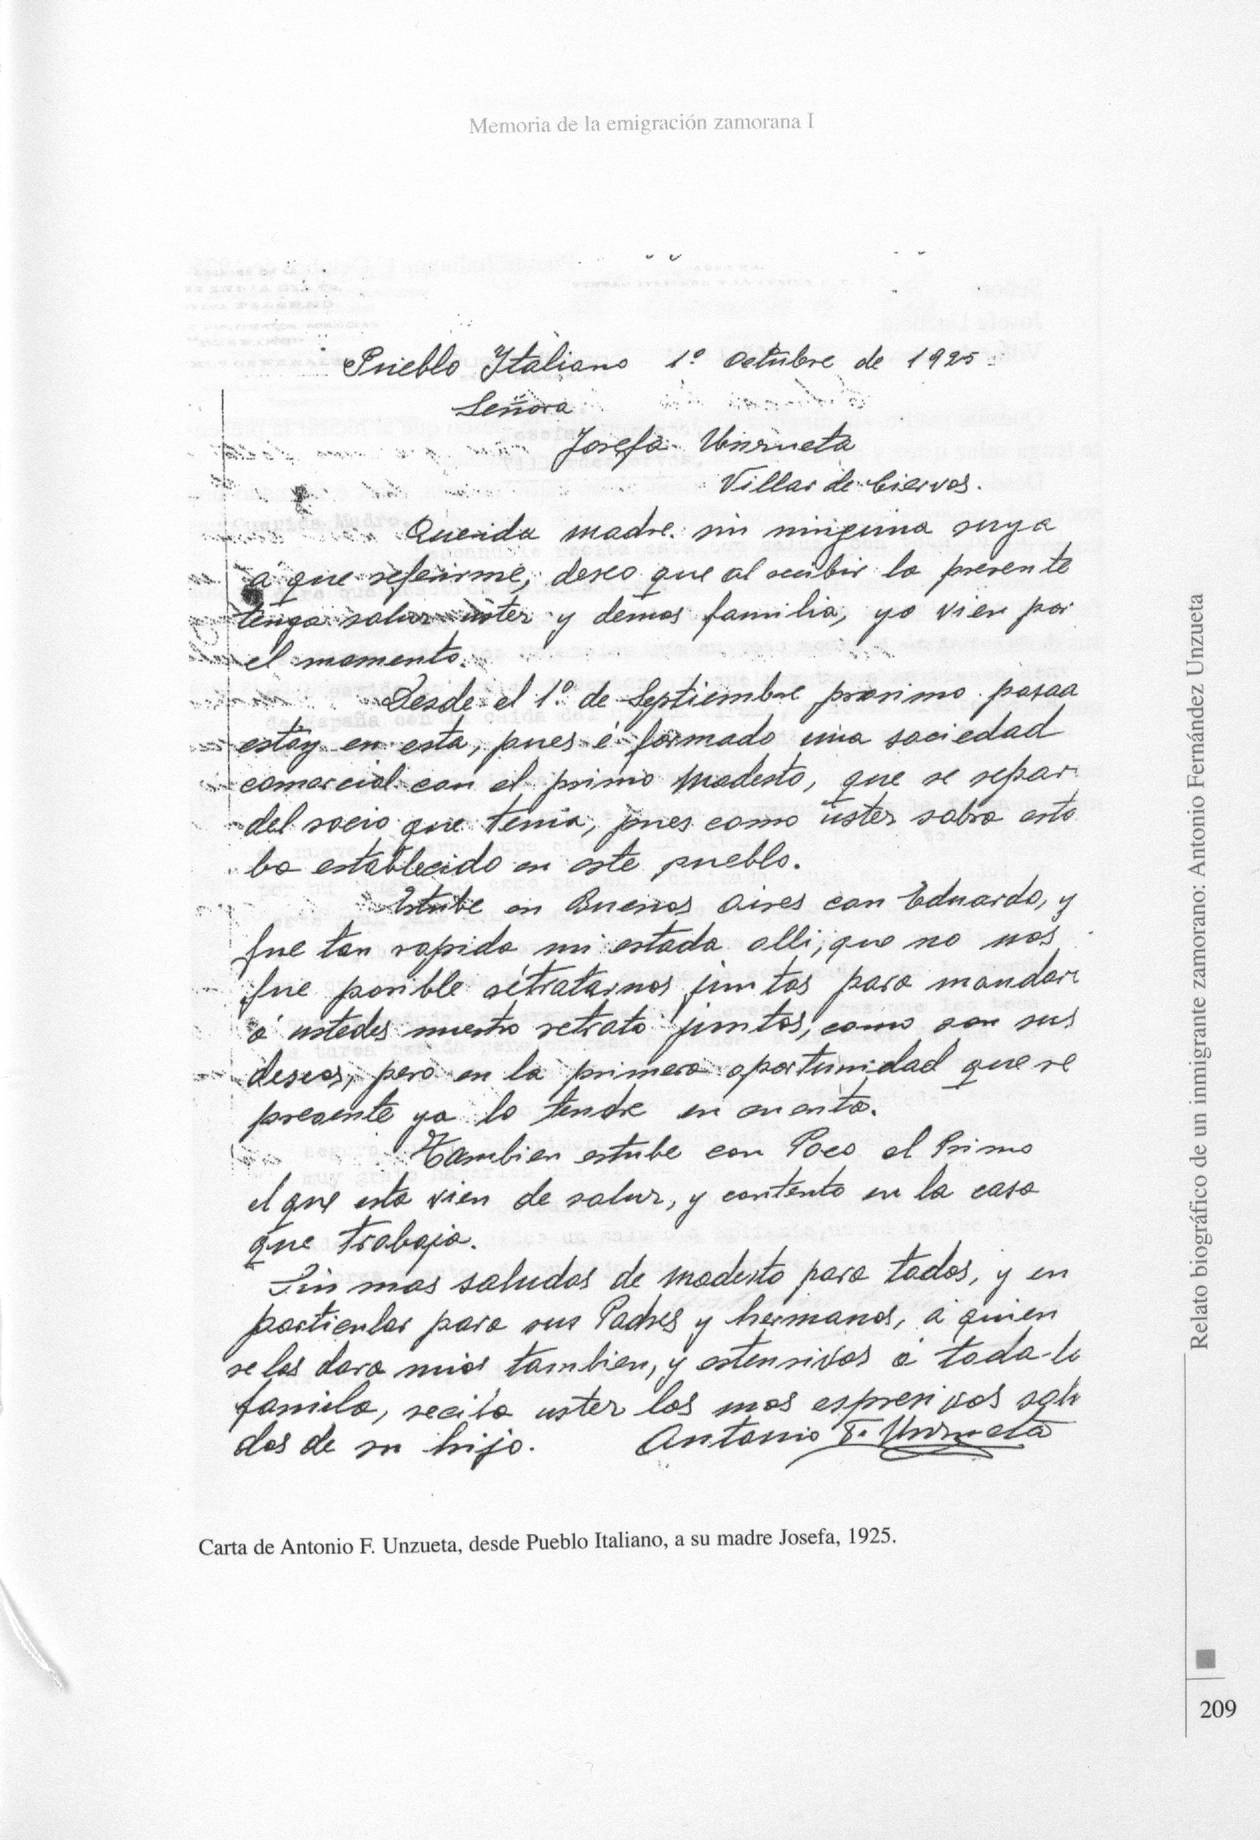 Memoria de la emigración zamorana I
Pueblo Italiano 1º Octubre de 1925
Señora
Josefa Unzueta
Villar de Ciervos.
Querida madre sin ninguna suya
á que referirme, deseo que al recibir la presente
tenga salur uster y demas familia, yo vien por
el momento.
Desde el 1º de Septiembre proximo pasaa
estoy en esta, pues é formado una sociedad
comarcial con el primo Modesto, que se separ
del socio que tenia, pues como uster sabra esta
ba establecido en este pueblo.
Estube en Buenos Aires con Eduardo, y
fue tan rapida mi estada alli, que no nos
fue posible retratarnos juntos para mandar
á ustedes nuestro retrato juntos, como son sus
deseos, pero en la primera oportunidad que se
presente ya lo tendre en cuenta.
Tambien estube con Paco el Primo
el que esta vien de salur, y contento en la casa
que trabaja.
Sin mas saludos de Modesto para todos, y en
particular para sus Padres y hermanos, á quien
se los dara mios tambien, y estensivos á toda la
familia, reciba uster los mas espresivos salu
dos de su hijo. Antonio F. Unzueta
Carta de Antonio F. Unzueta, desde Pueblo Italiano, a su madre Josefa, 1925.
Relato biográfico de un inmigrante zamorano: Antonio Fernández Unzueta
209